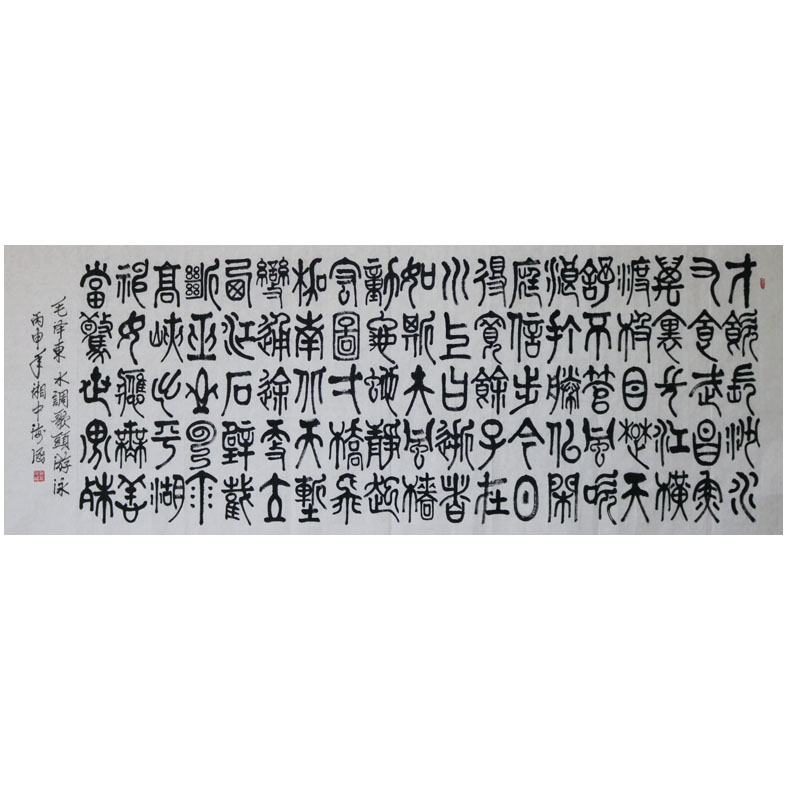 才飲長沙水
又食武昌魚
萬裏長江橫
渡極目楚天
舒不管風吹
浪打勝似閑
庭信步今日
得寬餘子在
川上曰逝者
如斯夫風檣
動龜蛇靜起
宏圖一橋飛
架南北天塹
變通途更立
西江石壁截
斷巫山雲雨
高峽出平湖
神女應無恙
當驚世界殊
毛泽東水調歌頭游泳
丙申年湘中